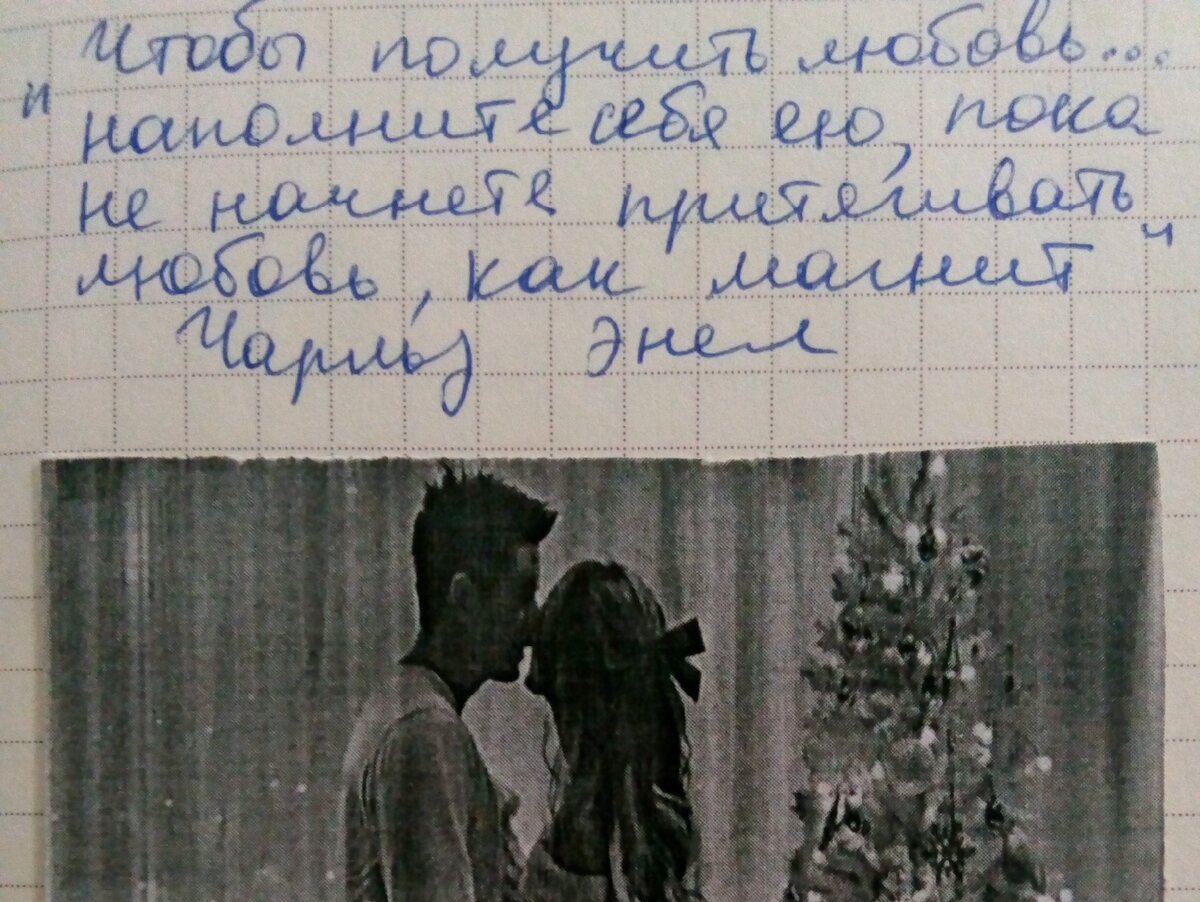 Чтобы получить любовь...
"наполните себя ею, пока
не начнете притягивать
любовь, как магнит"
Чарльз Энел